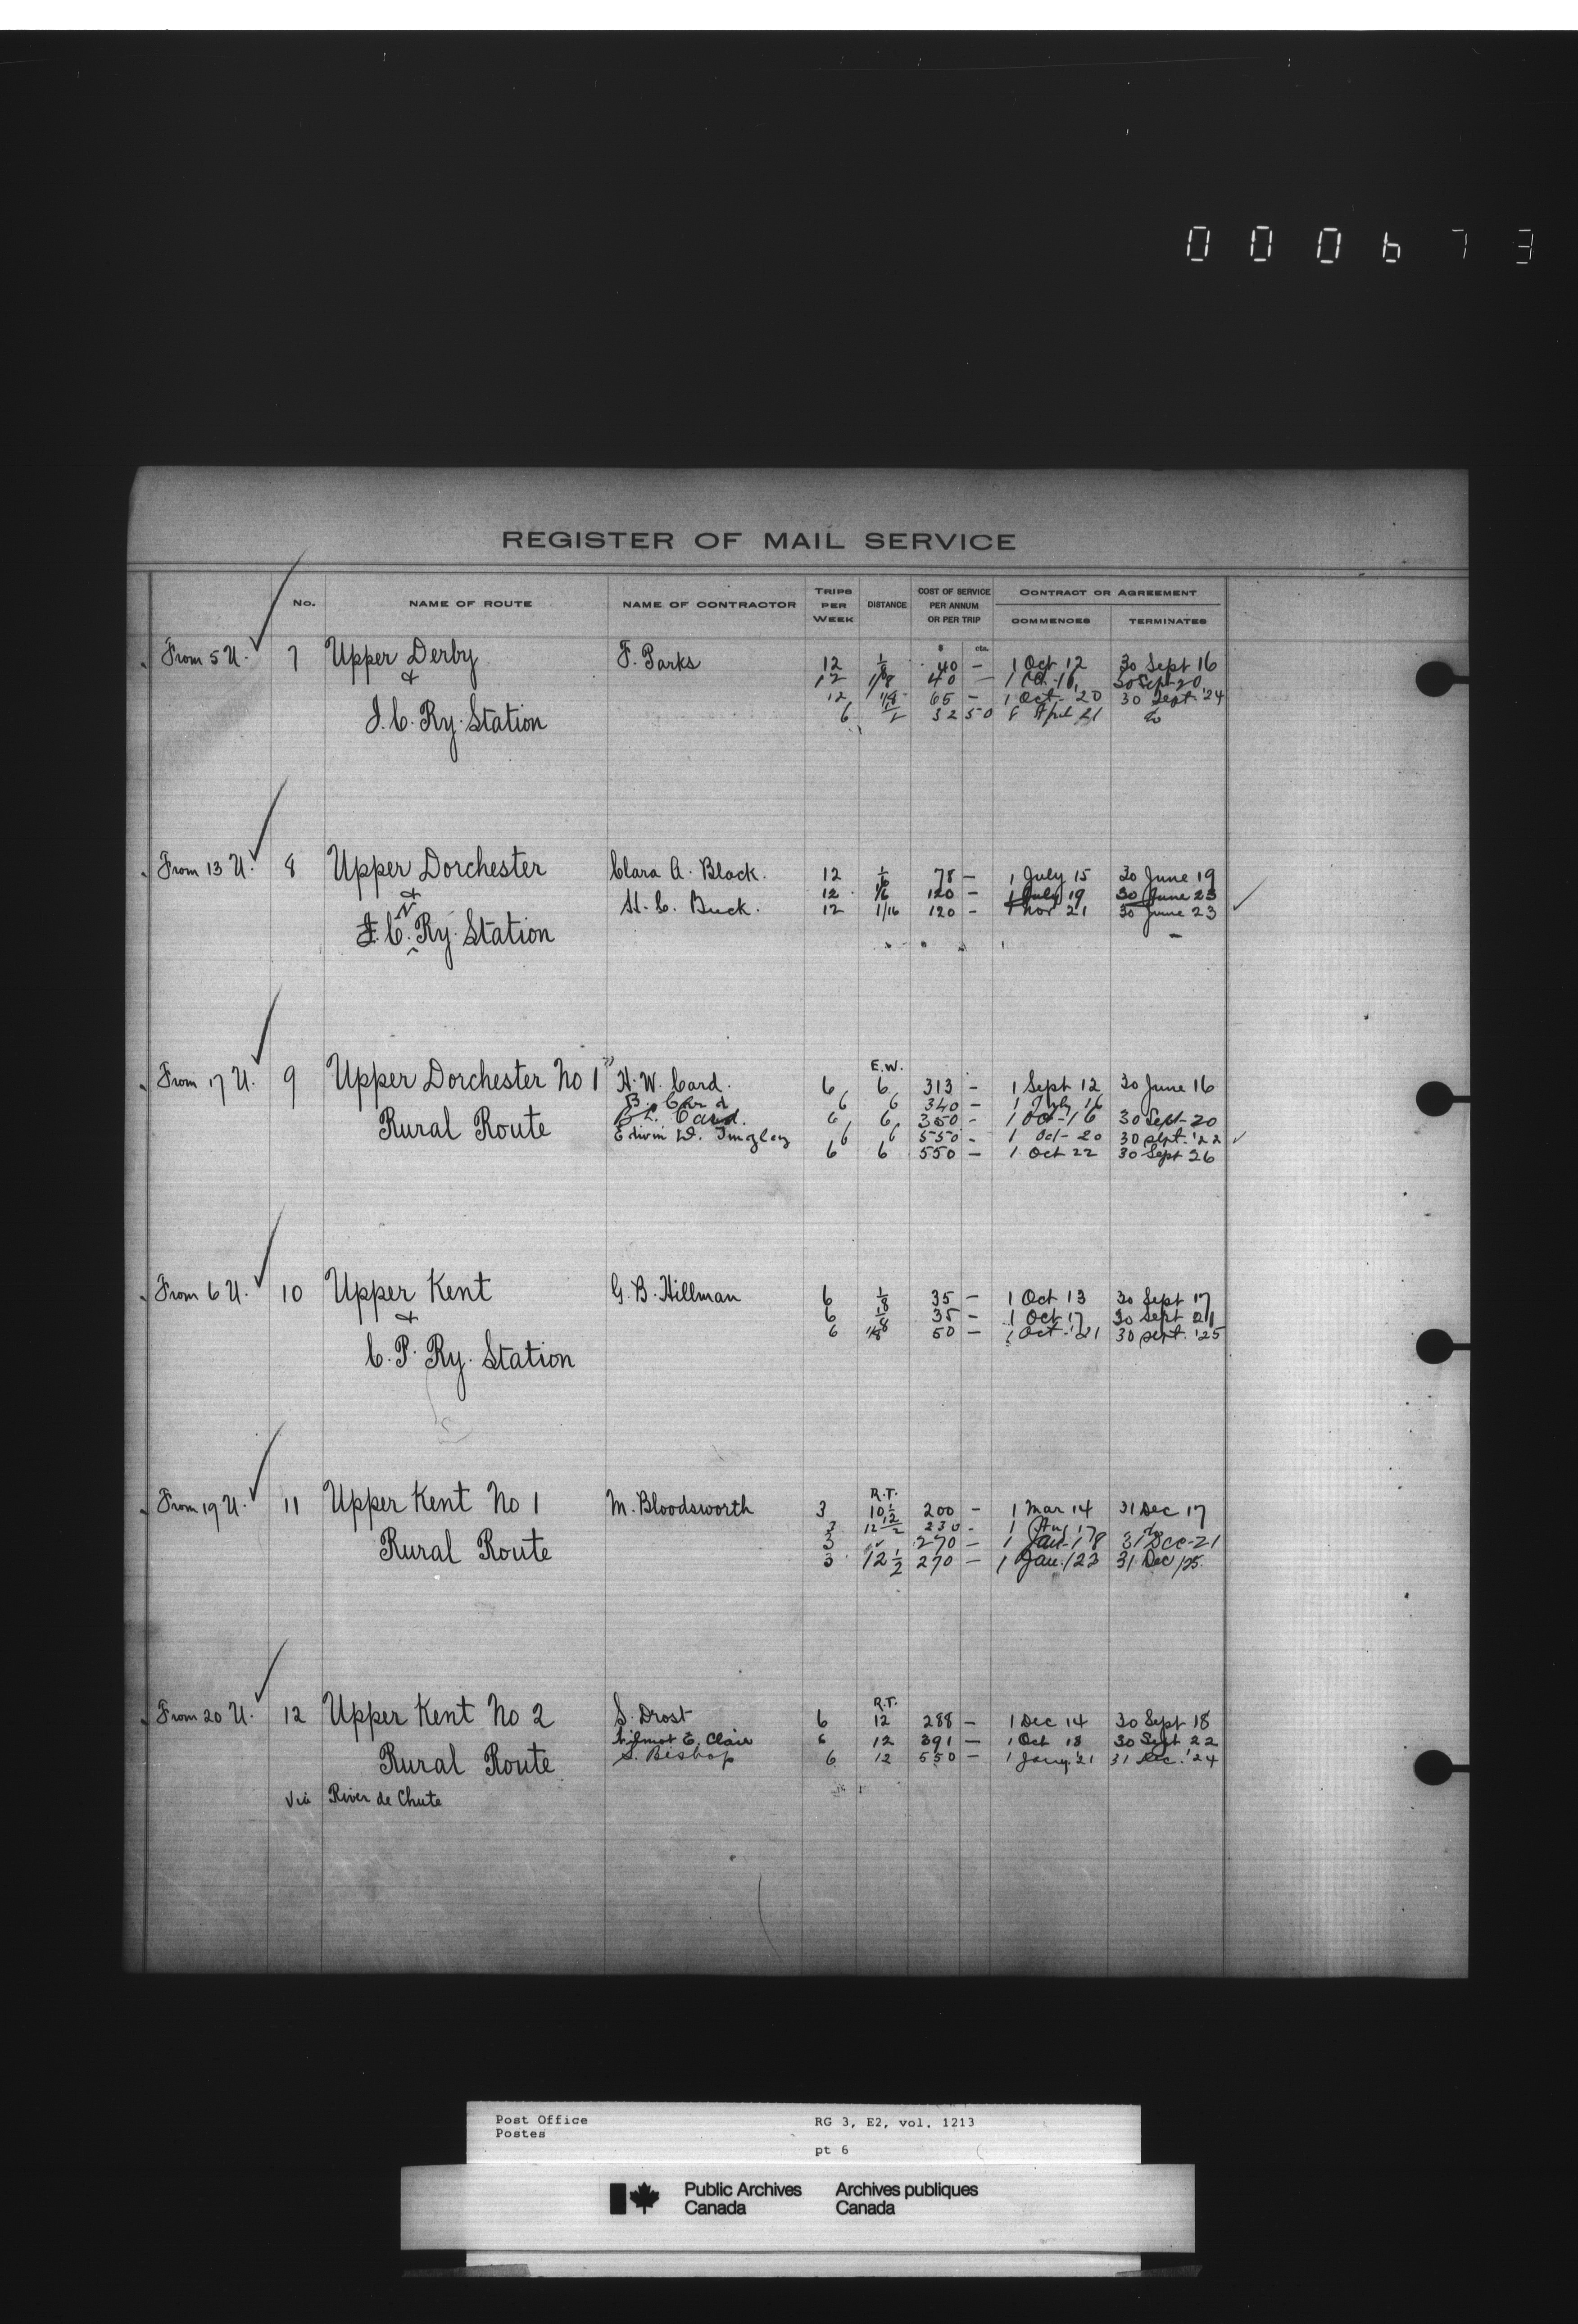 000673
REGISTER OF MAIL SERVICE
No. NAME OF ROUTE NAME OF CONTRACTOR TRIPS PER WEEK DISTANCE COST OF SERVICE PER ANNUM OR PER TRIP CONTRACT OR AGREEMENT
COMMENCES TERMINATES
$ cts.
From 5 U. 7 Upper Derby F. Parks 12 1/8 40 – 1 Oct 12 30 Sept 16
& 12 1/8 40 – 1 Oct-16 30 Sept-20
12 1/8 65 – 1 Oct '20 30 Sept. '24
I. C. Ry. Station 6 32 50 8 April 21 do
From 13 U. 8 Upper Dorchester Clara A. Black. 12 1/6 78 – 1 July 15 30 June 19
& 12 1/6 120 – 1 July 19 30 June 23
H. C. Buck. 12 1/16 120 – 1 Nov 21 30 June 23
C. N. Ry. Station
E.W.
From 17 U. 9 Upper Dorchester No 1 H. W. Card. 6 6 313 – 1 Sept 12 30 June 16
B. Card 6 6 340 – 1 July 16
Rural Route B. L. Card. 6 6 350 – 1 Oct-16 30 Sept-20
Edwin W. Tingley 6 6 550 – 1 Oct-20 30 Sept. '22
6 6 550 – 1 Oct 22 30 Sept 26
From 6 U. 10 Upper Kent G. B. Hillman 6 1/8 35 – 1 Oct 13 30 Sept 17
& 6 1/8 35 – 1 Oct 17 30 Sept 21
6 1/8 50 – 1 Oct. '21 30 Sept. '25
C. P. Ry. Station
R.T.
From 19 U. 11 Upper Kent No 1 M. Bloodsworth 3 10 1/2 200 – 1 Mar 14 31 Dec 17
3 12 1/2 230 – 1 Aug 17 do
Rural Route 3 " 270 – 1 Jan-18 31 Dec-21
3 12 1/2 270 – 1 Jan./23 31 Dec/25.
R.T.
From 20 U. 12 Upper Kent No 2 S. Drost 6 12 288 – 1 Dec 14 30 Sept 18
Wilmot E. Clair 6 12 391 – 1 Oct 18 30 Sept 22
Rural Route S. Bishop 6 12 550 – 1 Jany. '21 31 Dec. '24
via River de Chute
Post Office RG 3, E2, vol. 1213
Postes
pt 6
Public Archives Archives publiques
Canada Canada